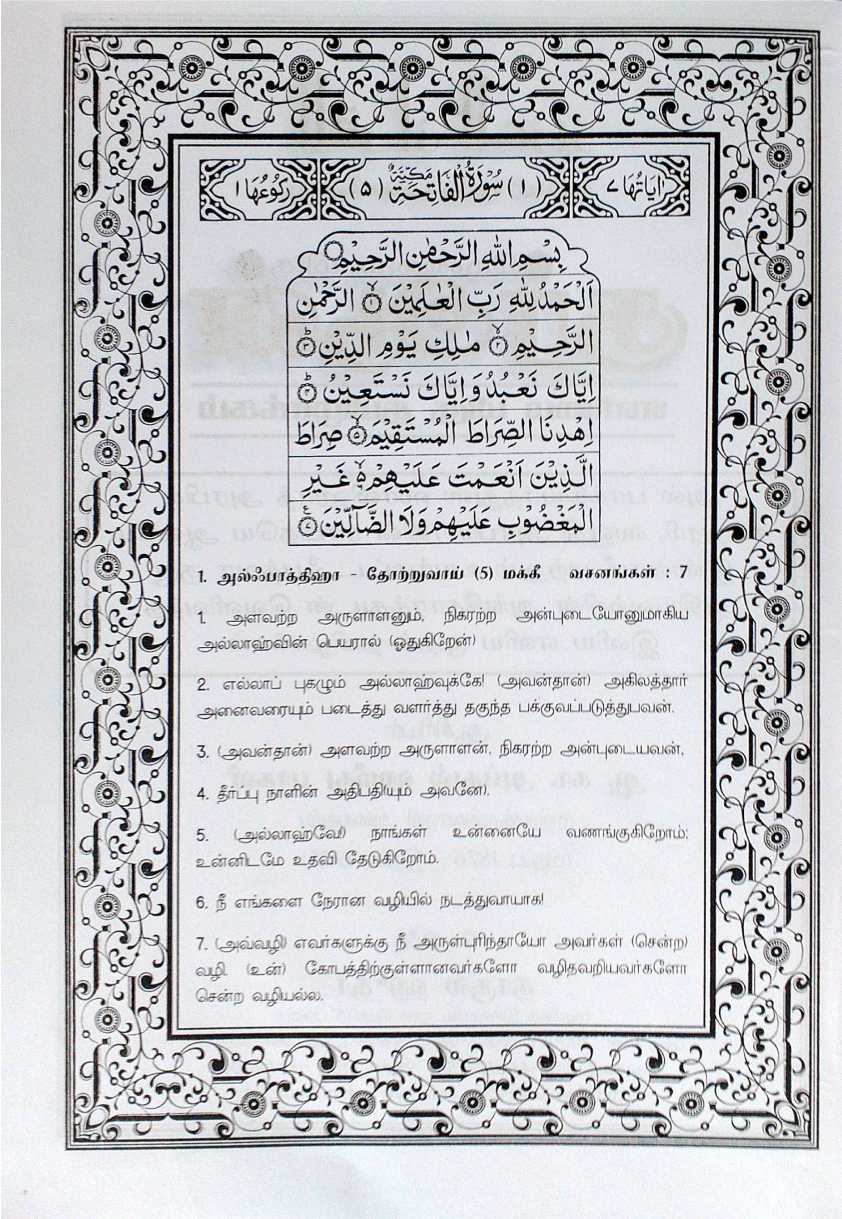 اٰيَاتُهَا ٧ (١) سُوْرَةُ الْفَاتِحَةِ مَكِّيَّةٌ (٥) رُكُوْعُهَا ١
بِسْمِ اللهِ الرَّحْمٰنِ الرَّحِيْمِ ۝
اَلْحَمْدُ لِلّٰهِ رَبِّ الْعٰلَمِيْنَ ۝١ الرَّحْمٰنِ
الرَّحِيْمِ ۝٢ مٰلِكِ يَوْمِ الدِّيْنِ ۝٣
اِيَّاكَ نَعْبُدُ وَاِيَّاكَ نَسْتَعِيْنُ ۝٤
اِهْدِنَا الصِّرَاطَ الْمُسْتَقِيْمَ ۝٥ صِرَاطَ
الَّذِيْنَ اَنْعَمْتَ عَلَيْهِمْ ۝٦ غَيْرِ
الْمَغْضُوْبِ عَلَيْهِمْ وَلَا الضَّآلِّيْنَ ۝٧
1. அல்ஃபாத்திஹா - தோற்றுவாய் (5) மக்கீ வசனங்கள் : 7
1. அளவற்ற அருளாளனும், நிகரற்ற அன்புடையோனுமாகிய
அல்லாஹ்வின் பெயரால் (ஓதுகிறேன்)
2. எல்லாப் புகழும் அல்லாஹ்வுக்கே! (அவன்தான்) அகிலத்தார்
அனைவரையும் படைத்து வளர்த்து தகுந்த பக்குவப்படுத்துபவன்.
3. (அவன்தான்) அளவற்ற அருளாளன், நிகரற்ற அன்புடையவன்,
4. தீர்ப்பு நாளின் அதிபதி(யும் அவனே).
5. (அல்லாஹ்வே!) நாங்கள் உன்னையே வணங்குகிறோம்;
உன்னிடமே உதவி தேடுகிறோம்.
6. நீ எங்களை நேரான வழியில் நடத்துவாயாக!
7. (அவ்வழி) எவர்களுக்கு நீ அருள்புரிந்தாயோ அவர்கள் (சென்ற)
வழி. (உன்) கோபத்திற்குள்ளானவர்களோ வழிதவறியவர்களோ
சென்ற வழியல்ல.